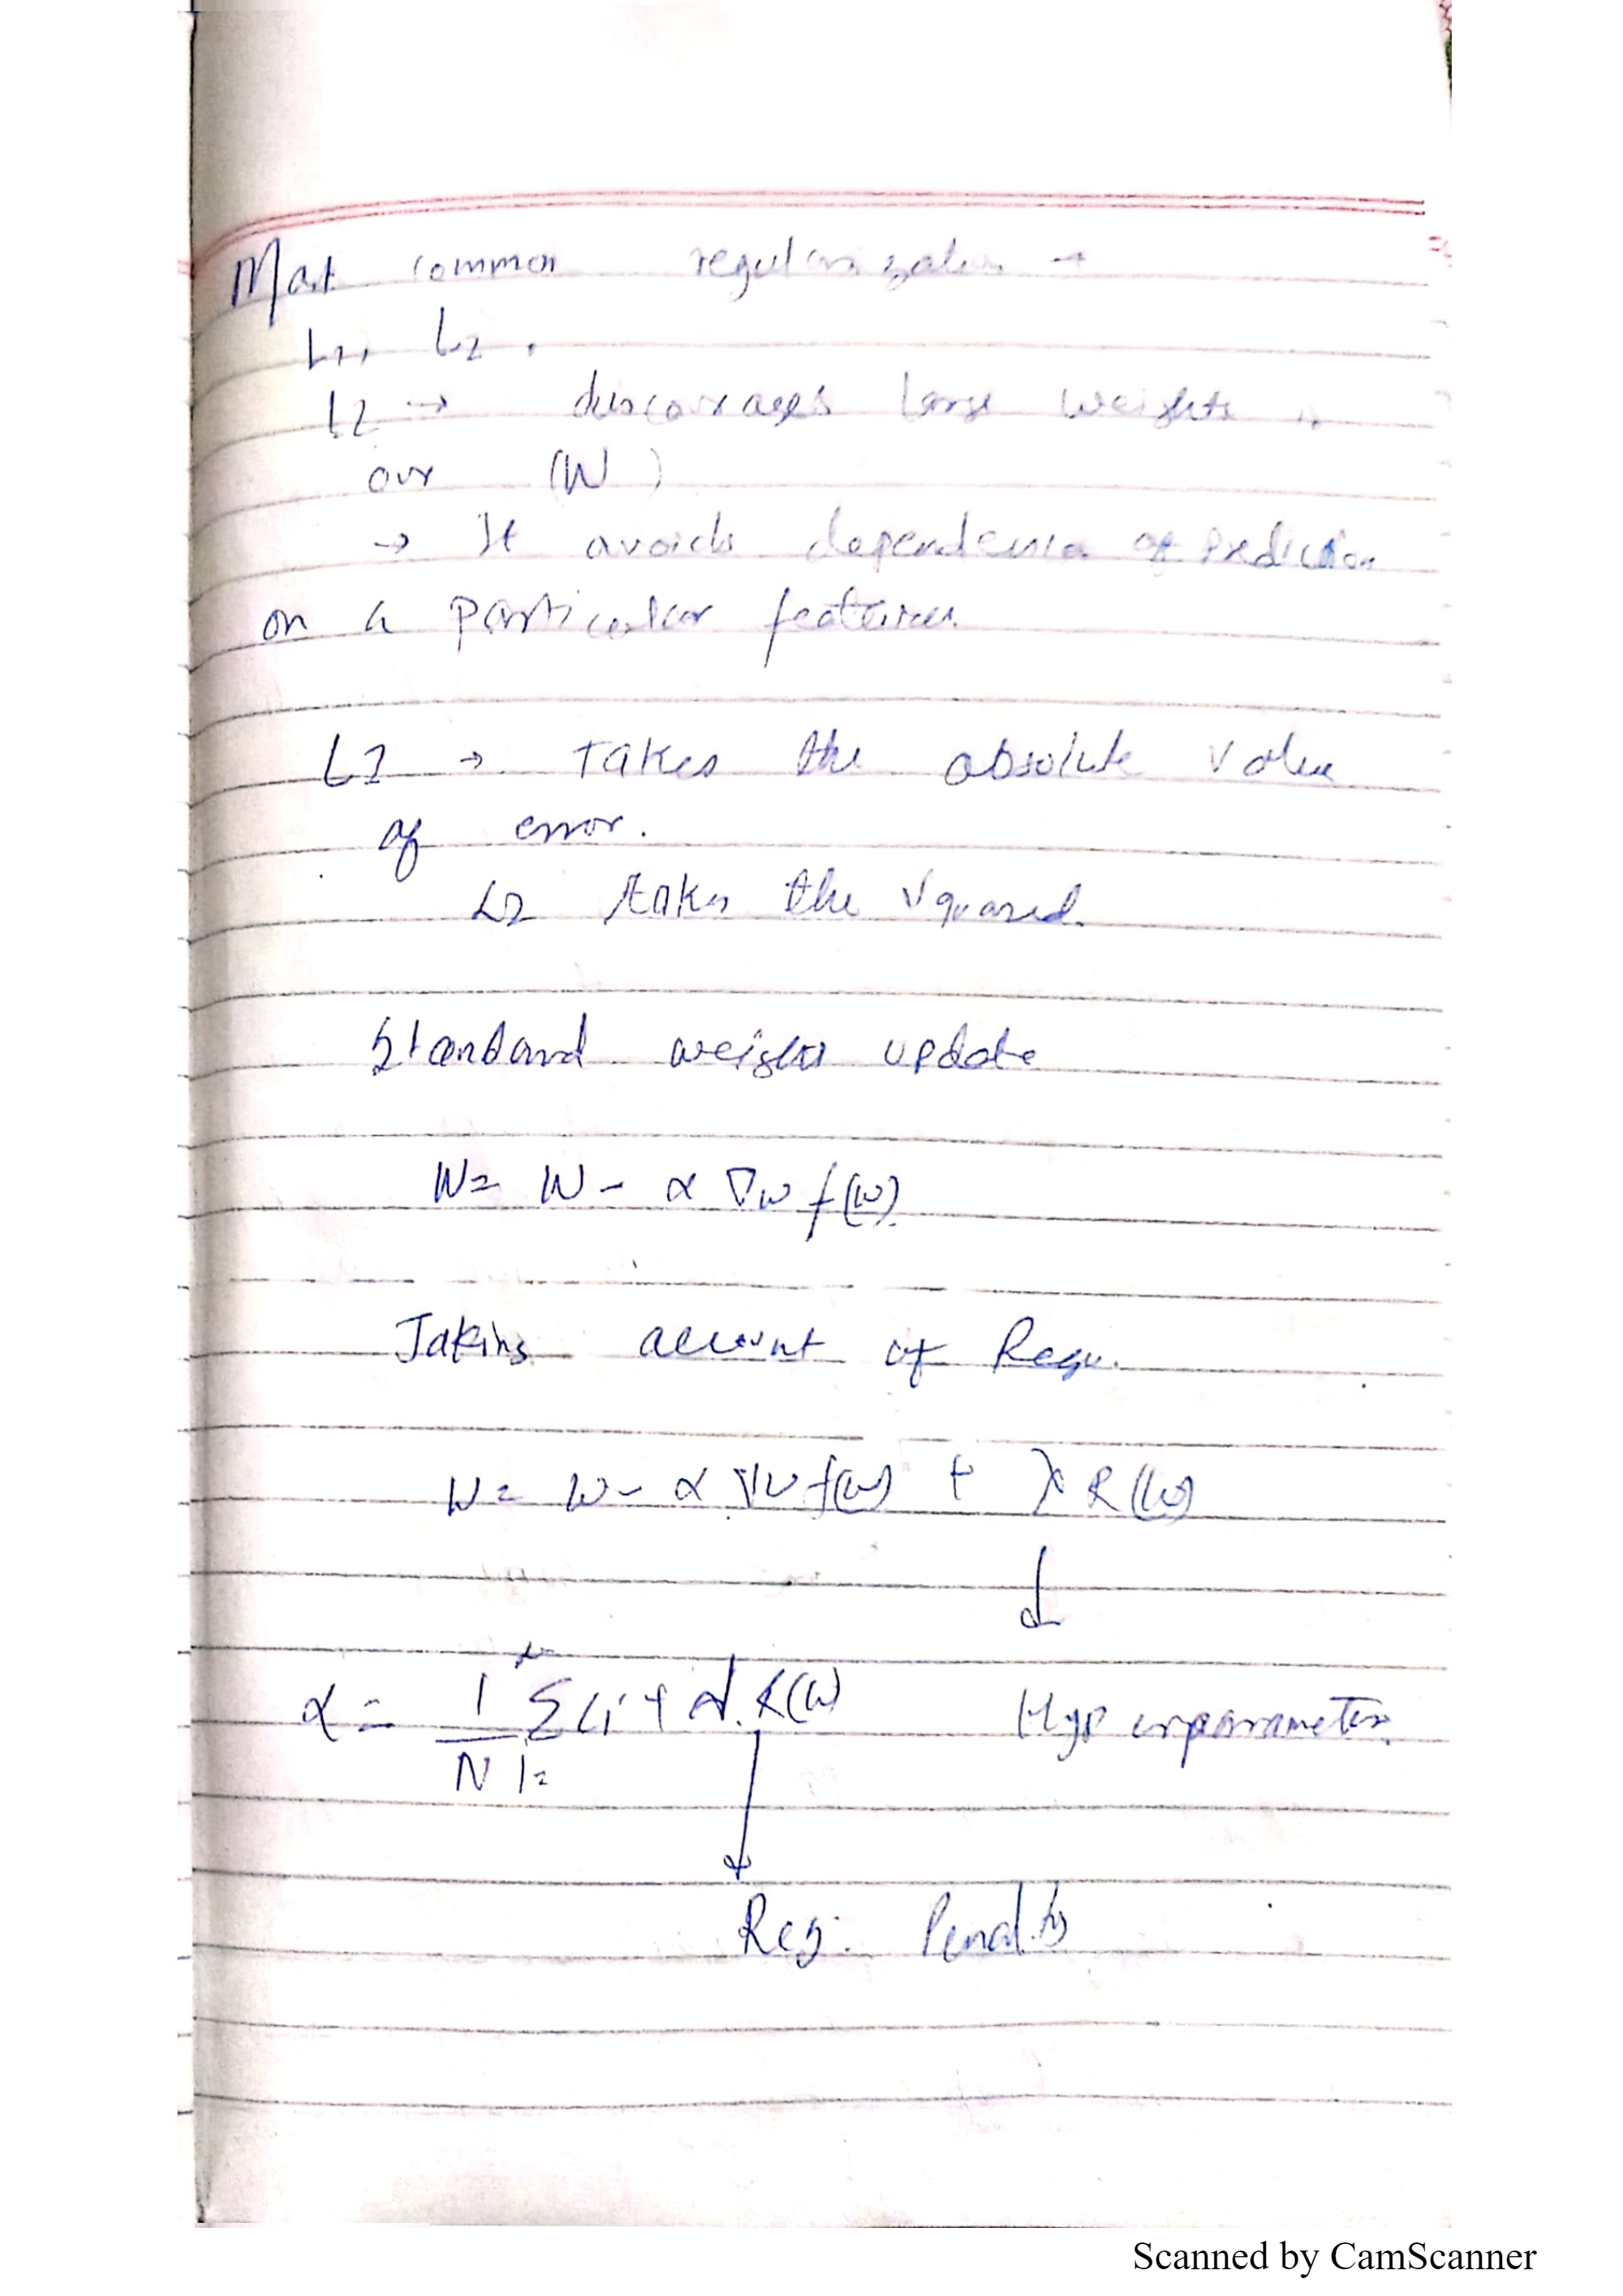 Most common regularization →
L1, L2.
L2 → discourages large weights in
our (W)
→ It avoids dependencia of prediction
on a particular features
L1 → Takes the absolute value
of error.
L2 takes the squared.
Standard weights update
W = W - α ∇w f(w).
Taking account of Regu.
W = W - α ∇w f(w) + λ R(w)
α = 1/N Σ Li + λ.R(w) Hyperparameter.
Reg. Penalty
Scanned by CamScanner